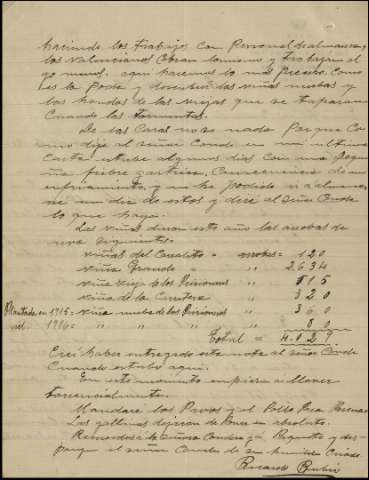 haciendo los trabajos con personal
los valencianos cobran lo mismo y trabajan al
go menos. aqui hacemos lo mas preciso, como
es la poda y descubrir las viñas nuebas y
los hondos de las viejas que se taparan
cuando las tormentas.
De las Casas no se nada porque co
mo dije al señor Conde en mi ultima
carta estube algunos dias con una peque
ña fiebre gastrica, consecuencia de un
enfriamiento, y no he podido ir
ire un dia de estos y dire al Señor Conde
lo que haya.
Las viñas dieron este año las arrobas de
uva siguientes.
viñas del Canalito = 120
viña Grande " " 2.634
viña vieja de los Prisioneros " " 515
viña de la Carretera " " 320
Plantada en 1915 = viña nueba de los Prisioneros " " 360
id. 1916 = " " " " " 80
Total = 4.029
Crei haber entregado esta nota al señor Conde
cuando estubo aqui.
En este momento empieza a llover
torrencialmente.
Mandaré los Pavos y el Pollo para
Las gallinas dejaron de poner en absoluto.
Recuerdos a la señora Condesa y Paquito y des-
ponga el señor Conde de su humilde criado
Ricardo Rubio